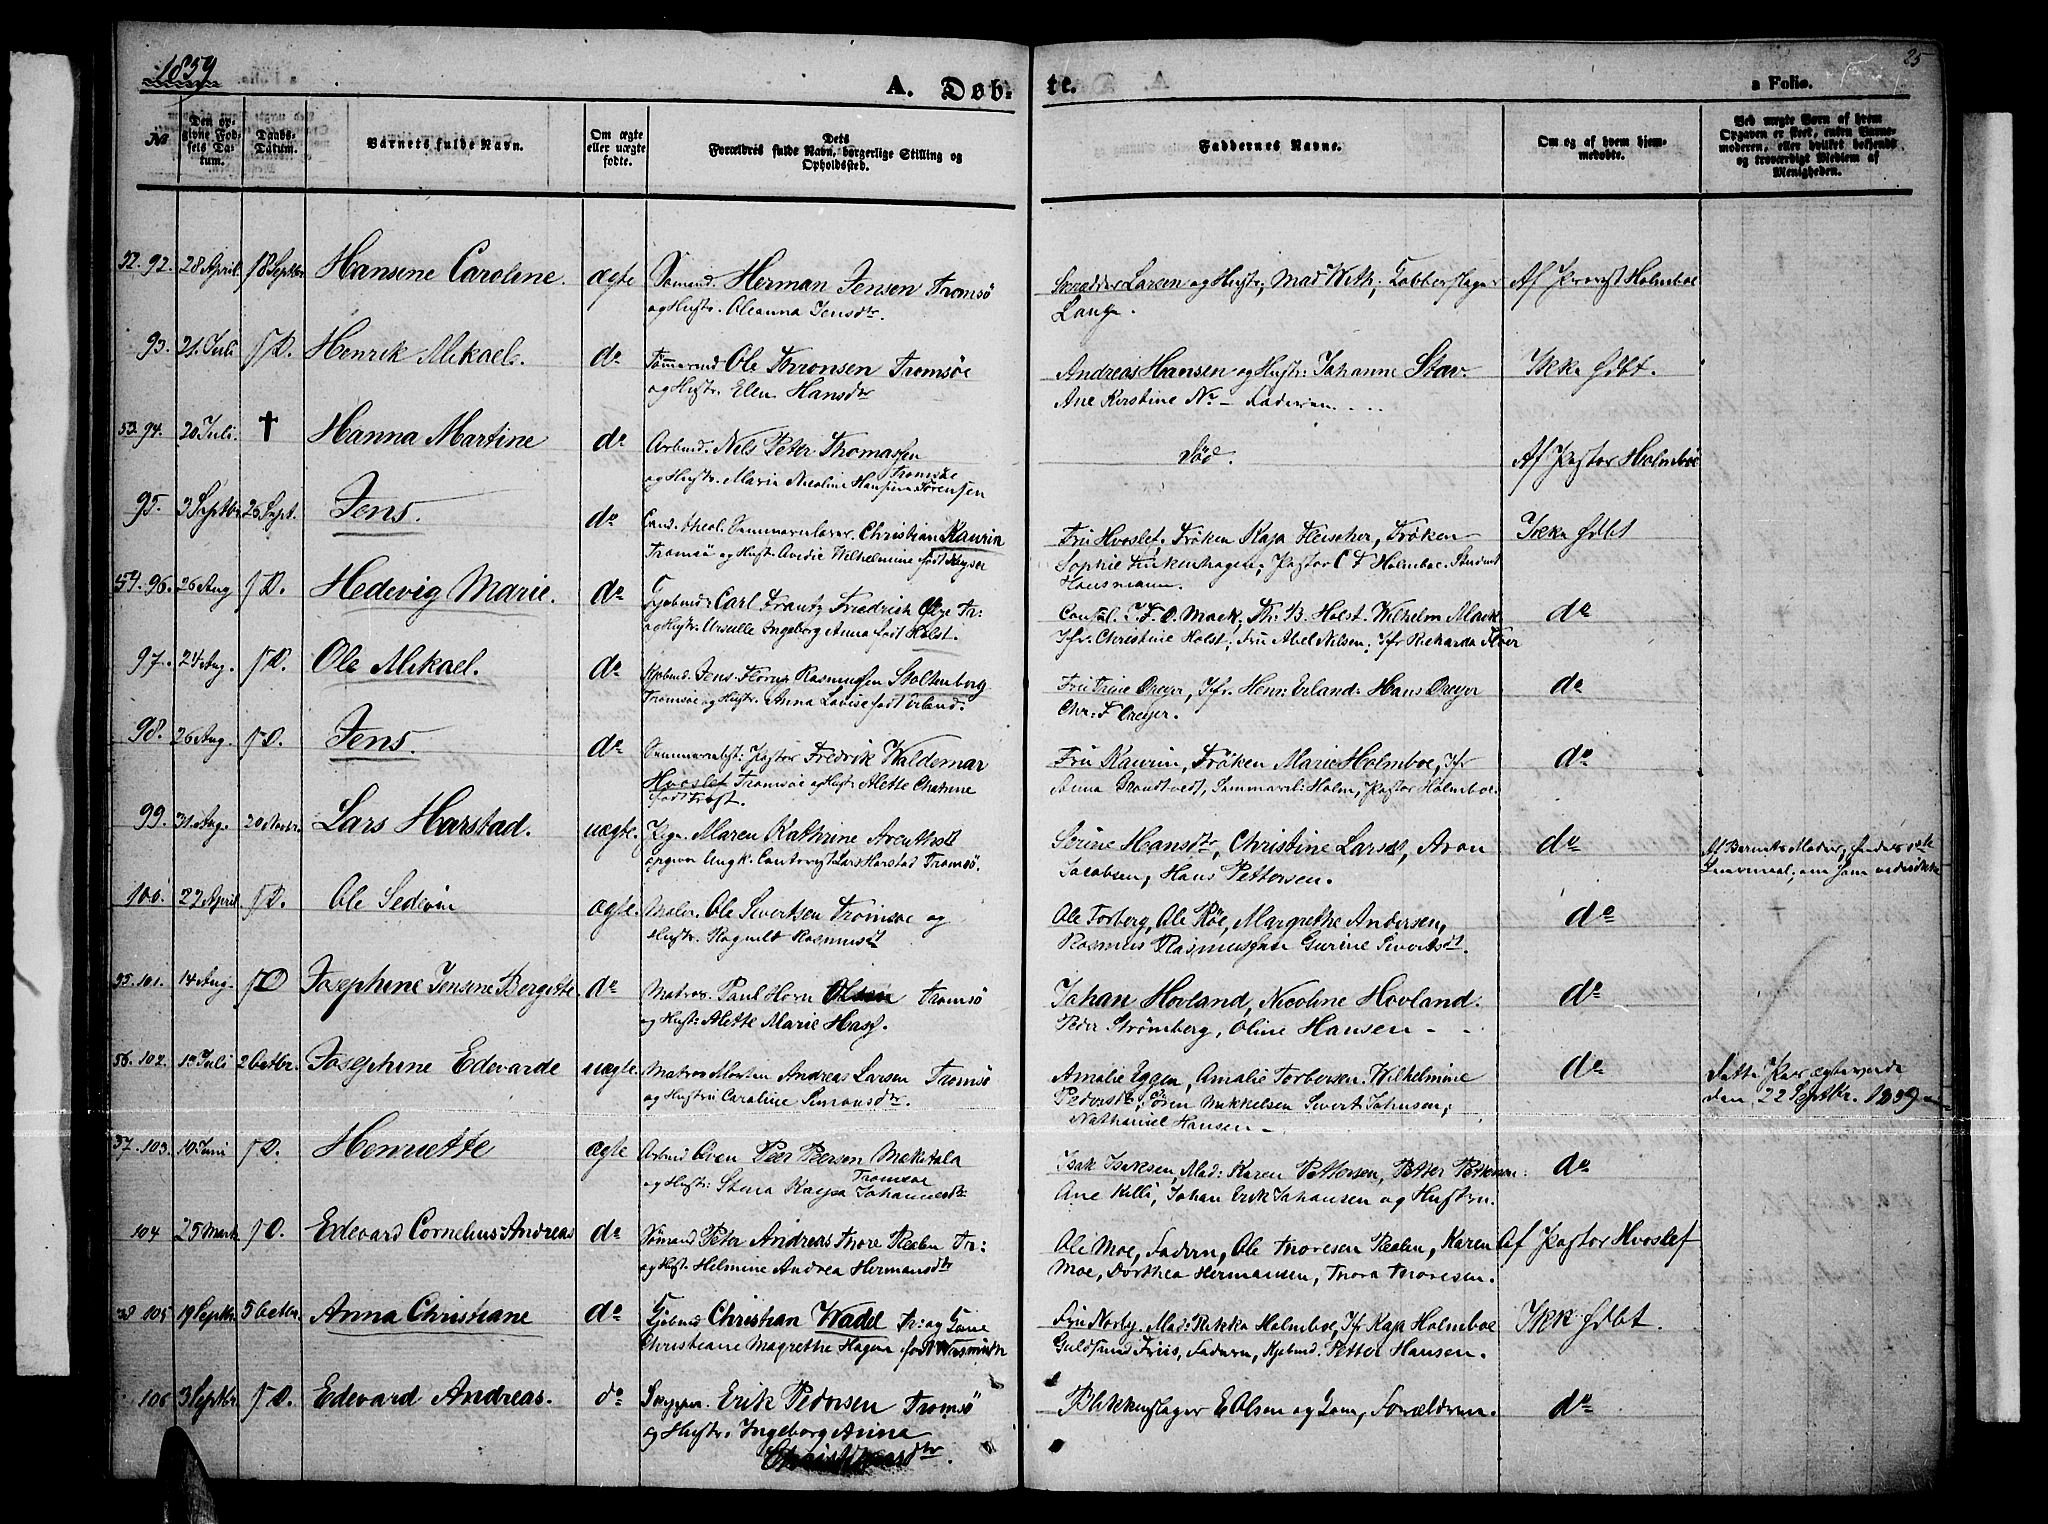 1859
A. Døb-
te.
a Folio.
25
No
Den op-
givne Fød-
sels Da-
tum.
Daabs-
Datum.
Barnets fulde Navn.
Om ægte
eller uægte
fødte.
Dets
Forældres fulde Navn, borgerlige Stilling og
Opholdssted.
Faddernes Navne.
Om og af hvem hjem-
medøbte.
Ved uægte Børn af hvem
Opgaven er skeet, enten Barne-
moderen, eller hvilket bekjendt
og troværdigt Medlem af
Menigheden.
52. 92. 28 April 18 Septbr Hansine Caroline. ægte Sømand. Herman Jensen Tromsø
og Hustr. Oleanna Jensdtr.
Skrædder Larsen og Hustr; Mad With; Kobberslager
Lange.
Af Provst Holmboe
93. 21. Juli S.D. Henrik Mikael. do Tømmermd Ole Thronsen Tromsøe
og Hustr. Elen Hansdtr
Andreas Hansen og Hustr: Johanne Stav.
Ane Kirstine No - Faderen
Ikke hdbt.
53. 94. 20 Juli. † Hanna Martine do Arbmd. Nils Peter Thomassen
Tromsøe
og Hustr. Maria Nicoline Hansen Sørensen
Død.
Af Pastor Holmboe
95. 3 Septbr 25 Sept. Jens. do Cand. theol. Seminarielærer Christian Kaurin
Tromsø og Hustr. Avidie Wilhelmine født Kyser
Fru Hvoslef, Frøken Kaja Fleischer, Frøken
Sophie Finkenhagen, Pastor C F Holmboe. Student
Hansmann.
Ikke hdbt
54. 96. 26 Aug S.D. Hedevig Marie. do Kjøbmd: Carl Frantz Friedrich Tr:
og Hustr. Ursulle Ingeborg Anna født Holst.
Consul. J. F. O. Mack, Th: B. Holst. Wilhelm Mack
Jfr. Christine Holst; Fru Abel Nilsen; Jfr Richarda
do
97. 24 Aug. S.D. Ole Mikael. do Kjøbmd. Jens Florup Rasmussen Stoltenberg
Tromsøe og Hustr. Anna Lovise født Erland.
Fru Trine Dreyer, Jfr. Henr: Erland. Hans Dreyer
Chr: F Dreyer.
do
98. 26 Aug. S.D. Jens. do Seminariebst: Pastor Fredrik Waldemar
Hvoslef Tromsøe og Hustr Alette Chatrine
født Frost.
Fru Kaurin, Frøken Marie Holmboe, Jfr
Anna Brandtvedt, Seminariel: Holm, Pastor Holmboe.
do
99. 31 Aug. 20 Lars Harstad. uægte. Pige. Maren Kathrine Arentsdt
opgiver Ungk. Lars Harstad Tromsø.
Serine Hansdtr, Christine Larsdt, Aron
Jacobsen, Hans Pettersen.
do
Af Barnets Moder
100. 22 April S.D. Ole Sedivin ægte. Maler. Ole Sivertsen Tromsøe og
Hustr. Ragnild Rasmusdt
Ole Torberg, Ole Røe, Margrethe Andersen,
Rasmus Rasmussen Gurine Sivertsdt.
do
†
55. 101. 14 Aug. S.D Josephine Jensine Bergitte do Matros. Paul Horn Olsen Tromsø
og Hustr: Alette Marie Hass.
Johan Hovland, Nicoline Hovland.
Peder Strømberg, Oline Hansen -
do
56. 102. 13 Juli 2 Octbr. Josephine Edevarde uægte. Matros Morten Andreas Larsen Tromsø
og Hustru Caroline Simonsdtr.
Amalie Eggen, Amalie Torbersen. Wilhelmine
Pedersdtr, Søren Mikkelsen Sivert Johnsen;
Nathaniel Hansen -
do
Dette Par ægteviede
den 22 Septbr. 1859
57. 103. 10 Juni S.D. Henriette ægte Arbmd Peer Peersen Maketala
Tromsøe
og Hustr: Stina Kaysa Johannesdtr
Isak Isaksen, Mad: Karen Pettersen, Petter Pettersen:
Ane Killi, Johan Erik Johansen og Hustru.
do
104 25 Marts S.D. Edevard Cornelius Andreas do Sømand Peter Andreas Thore Tr:
og Hustr Helmine Andrea Hermansdtr
Ole Moe, Faderen, Ole Thoresen Karen
Moe, Dorthea Hermansen, Thora Thoresen.
Af Pastor Hvoslef
58 105 19 Septbr 5 Octbr. Anna Christiane do Kjøbmd Christian Wadel Tr: og Kone
Christiane Magrethe Hagen født Wasmuth
Fru Norby. Mad: Rebekka Holmboe, Jfr Kaja Holmboe
Guldsmd Friis, Faderen, Kjøbmd. Petter Hansen.
Ikke hdbt.
106 3 Septbr S.D. Edevard Andreas. do Skipper. Erik Pedersen Tromsø
og Hustr. Ingeborg Anna
Christiansdtr.
Blikkenslager E Olsen og Kone, Forældrene.
do